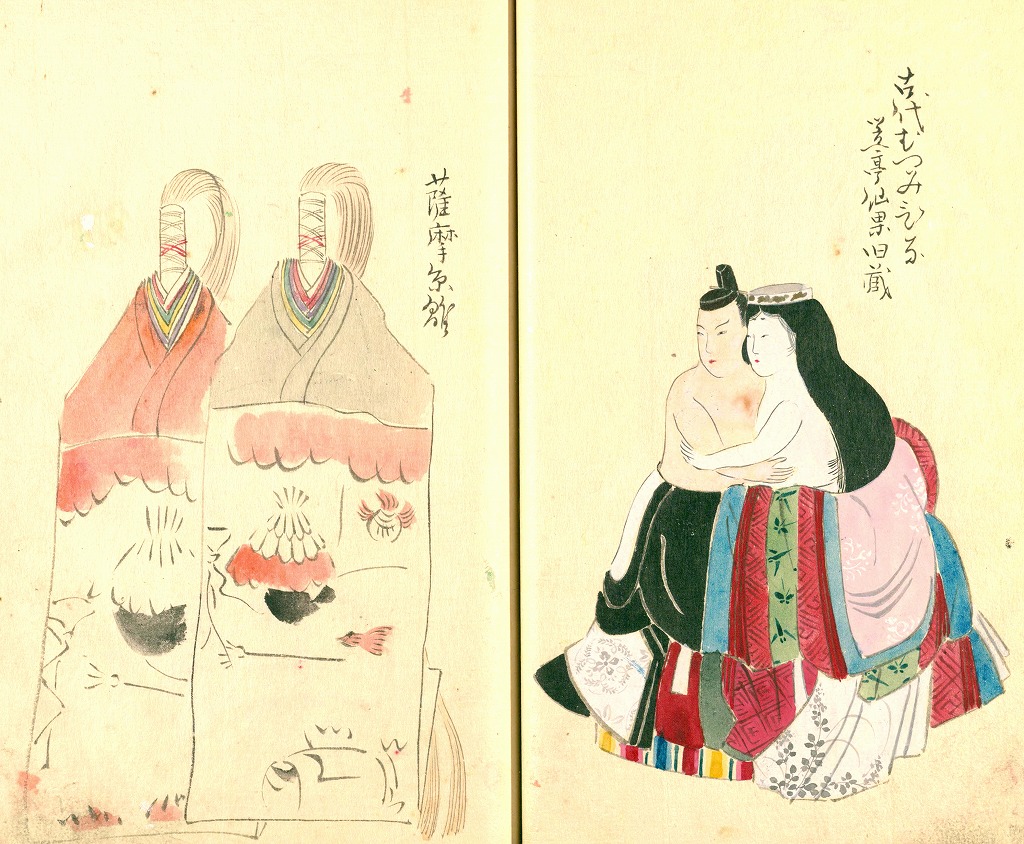 古代むつみひな
笠亭仙果旧蔵
薩摩糸雛